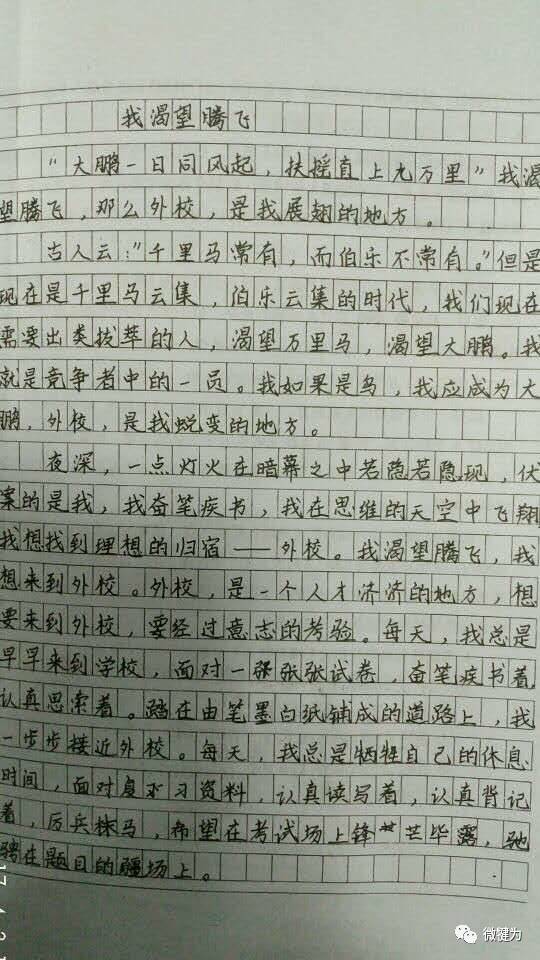 我渴望腾飞
“大鹏一日同风起，扶摇直上九万里”我渴
望腾飞，那么外校，是我展翅的地方。
古人云：“千里马常有，而伯乐不常有。”但是
现在是千里马云集，伯乐云集的时代，我们现在
需要出类拔萃的人，渴望万里马，渴望大鹏。我
就是竞争者中的一员。我如果是鸟，我应成为大
鹏，外校，是我蜕变的地方。
夜深，一点灯火在暗幕之中若隐若隐现，伏
案的是我，我奋笔疾书，我在思维的天空中飞翔
我想找到理想的归宿——外校。我渴望腾飞，我
想来到外校。外校，是一个人才济济的地方，想
要来到外校，要经过意志的考验。每天，我总是
早早来到学校，面对一张张张试卷，奋笔疾书着
认真思索着。踏在由笔墨白纸铺成的道路上，我
一步步接近外校。每天，我总是牺牲自己的休息
时间，面对复习资料，认真读写着，认真背记
着，厉兵秣马，希望在考试场上锋芒毕露，驰
骋在题目的疆场上。
微犍为